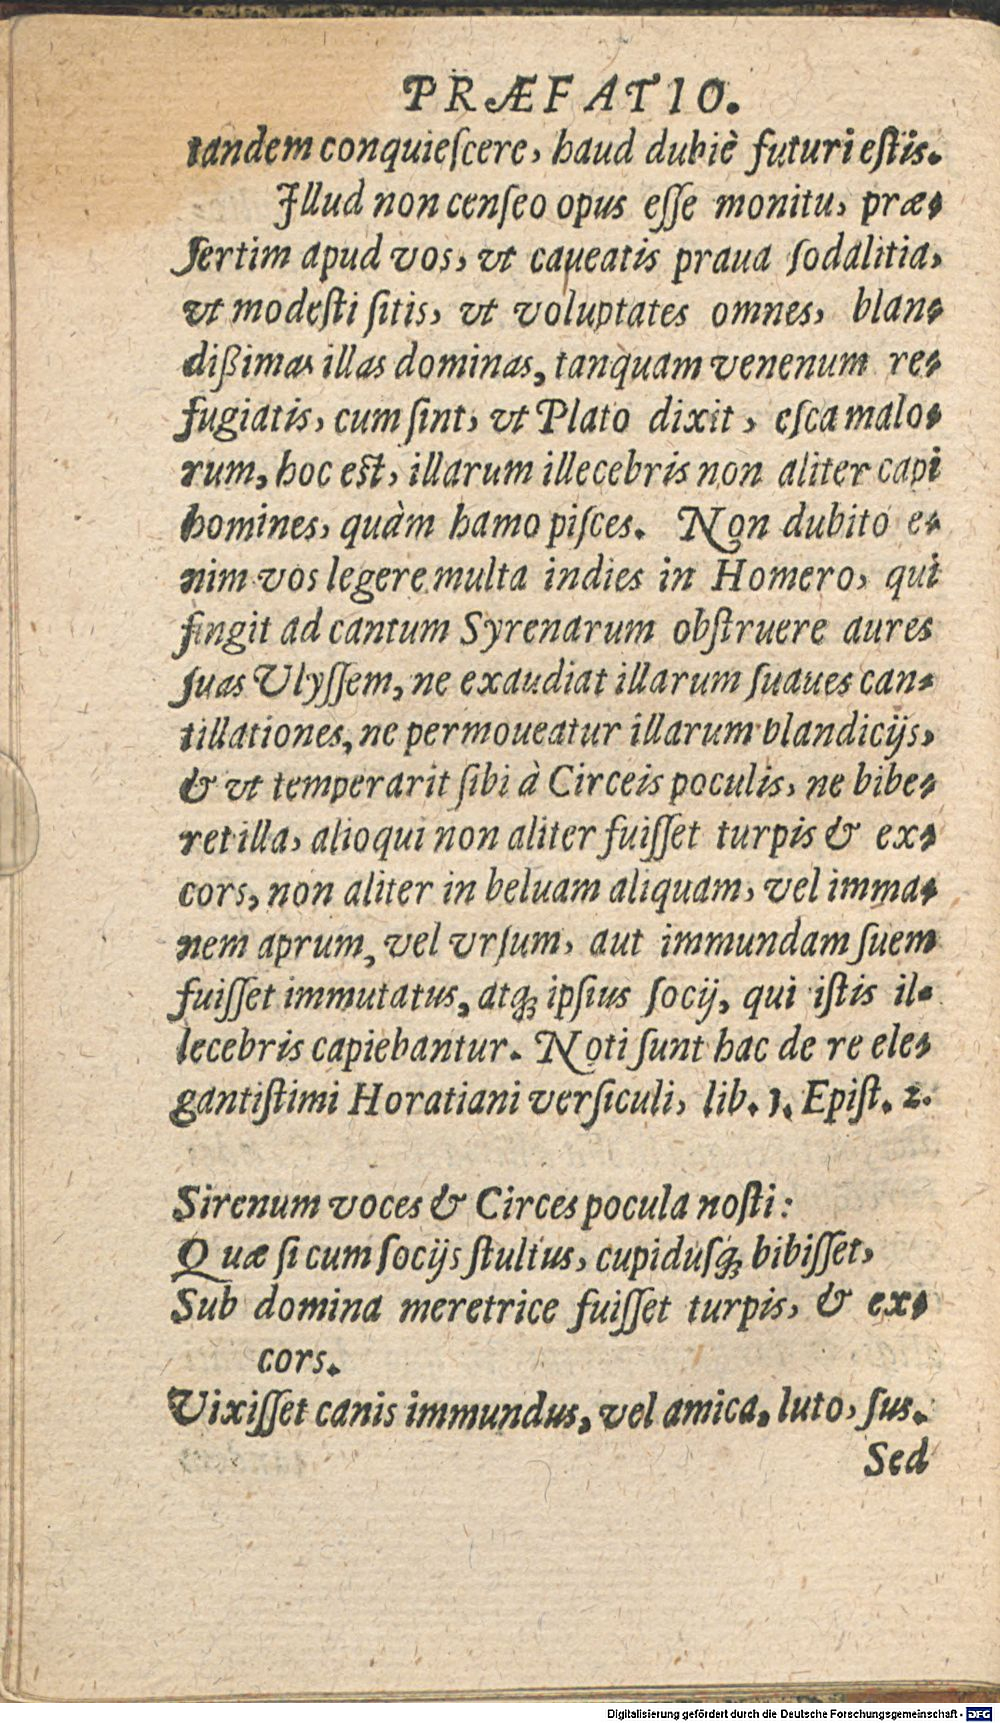 PRÆFATIO.
tandem conquieſcere, haud dubiè futuri eſtis.
Illud non cenſeo opus eſſe monitu, præ-
ſertim apud vos, vt caueatis praua ſodalitia,
vt modeſti ſitis, vt voluptates omnes, blan-
dißimas illas dominas, tanquam venenum re-
fugiatis, cum ſint, vt Plato dixit, eſca malo-
rum, hoc eſt, illarum illecebris non aliter capi
homines, quàm hamo piſces. Non dubito e-
nim vos legere multa indies in Homero, qui
fingit ad cantum Syrenarum obſtruere aures
ſuas Ulyſſem, ne exaudiat illarum ſuaues can-
tillationes, ne permoueatur illarum blandicijs,
& vt temperarit ſibi à Circeis poculis, ne bibe-
ret illa, alioqui non aliter fuiſſet turpis & ex-
cors, non aliter in beluam aliquam, vel imma-
nem aprum, vel vrſum, aut immundam ſuem
fuiſſet immutatus, atq; ipſius ſocij, qui iſtis il-
lecebris capiebantur. Noti ſunt hac de re ele-
gantiſtimi Horatiani verſiculi, lib. 1. Epiſt. 2.
Sirenum voces & Circes pocula noſti:
Quæ ſi cum ſocijs ſtultus, cupiduſq; bibiſſet,
Sub domina meretrice fuiſſet turpis, & ex-
cors.
Vixiſſet canis immundus, vel amica, luto, ſus.
Sed
Digitalisierung gefördert durch die Deutsche Forschungsgemeinschaft - DFG